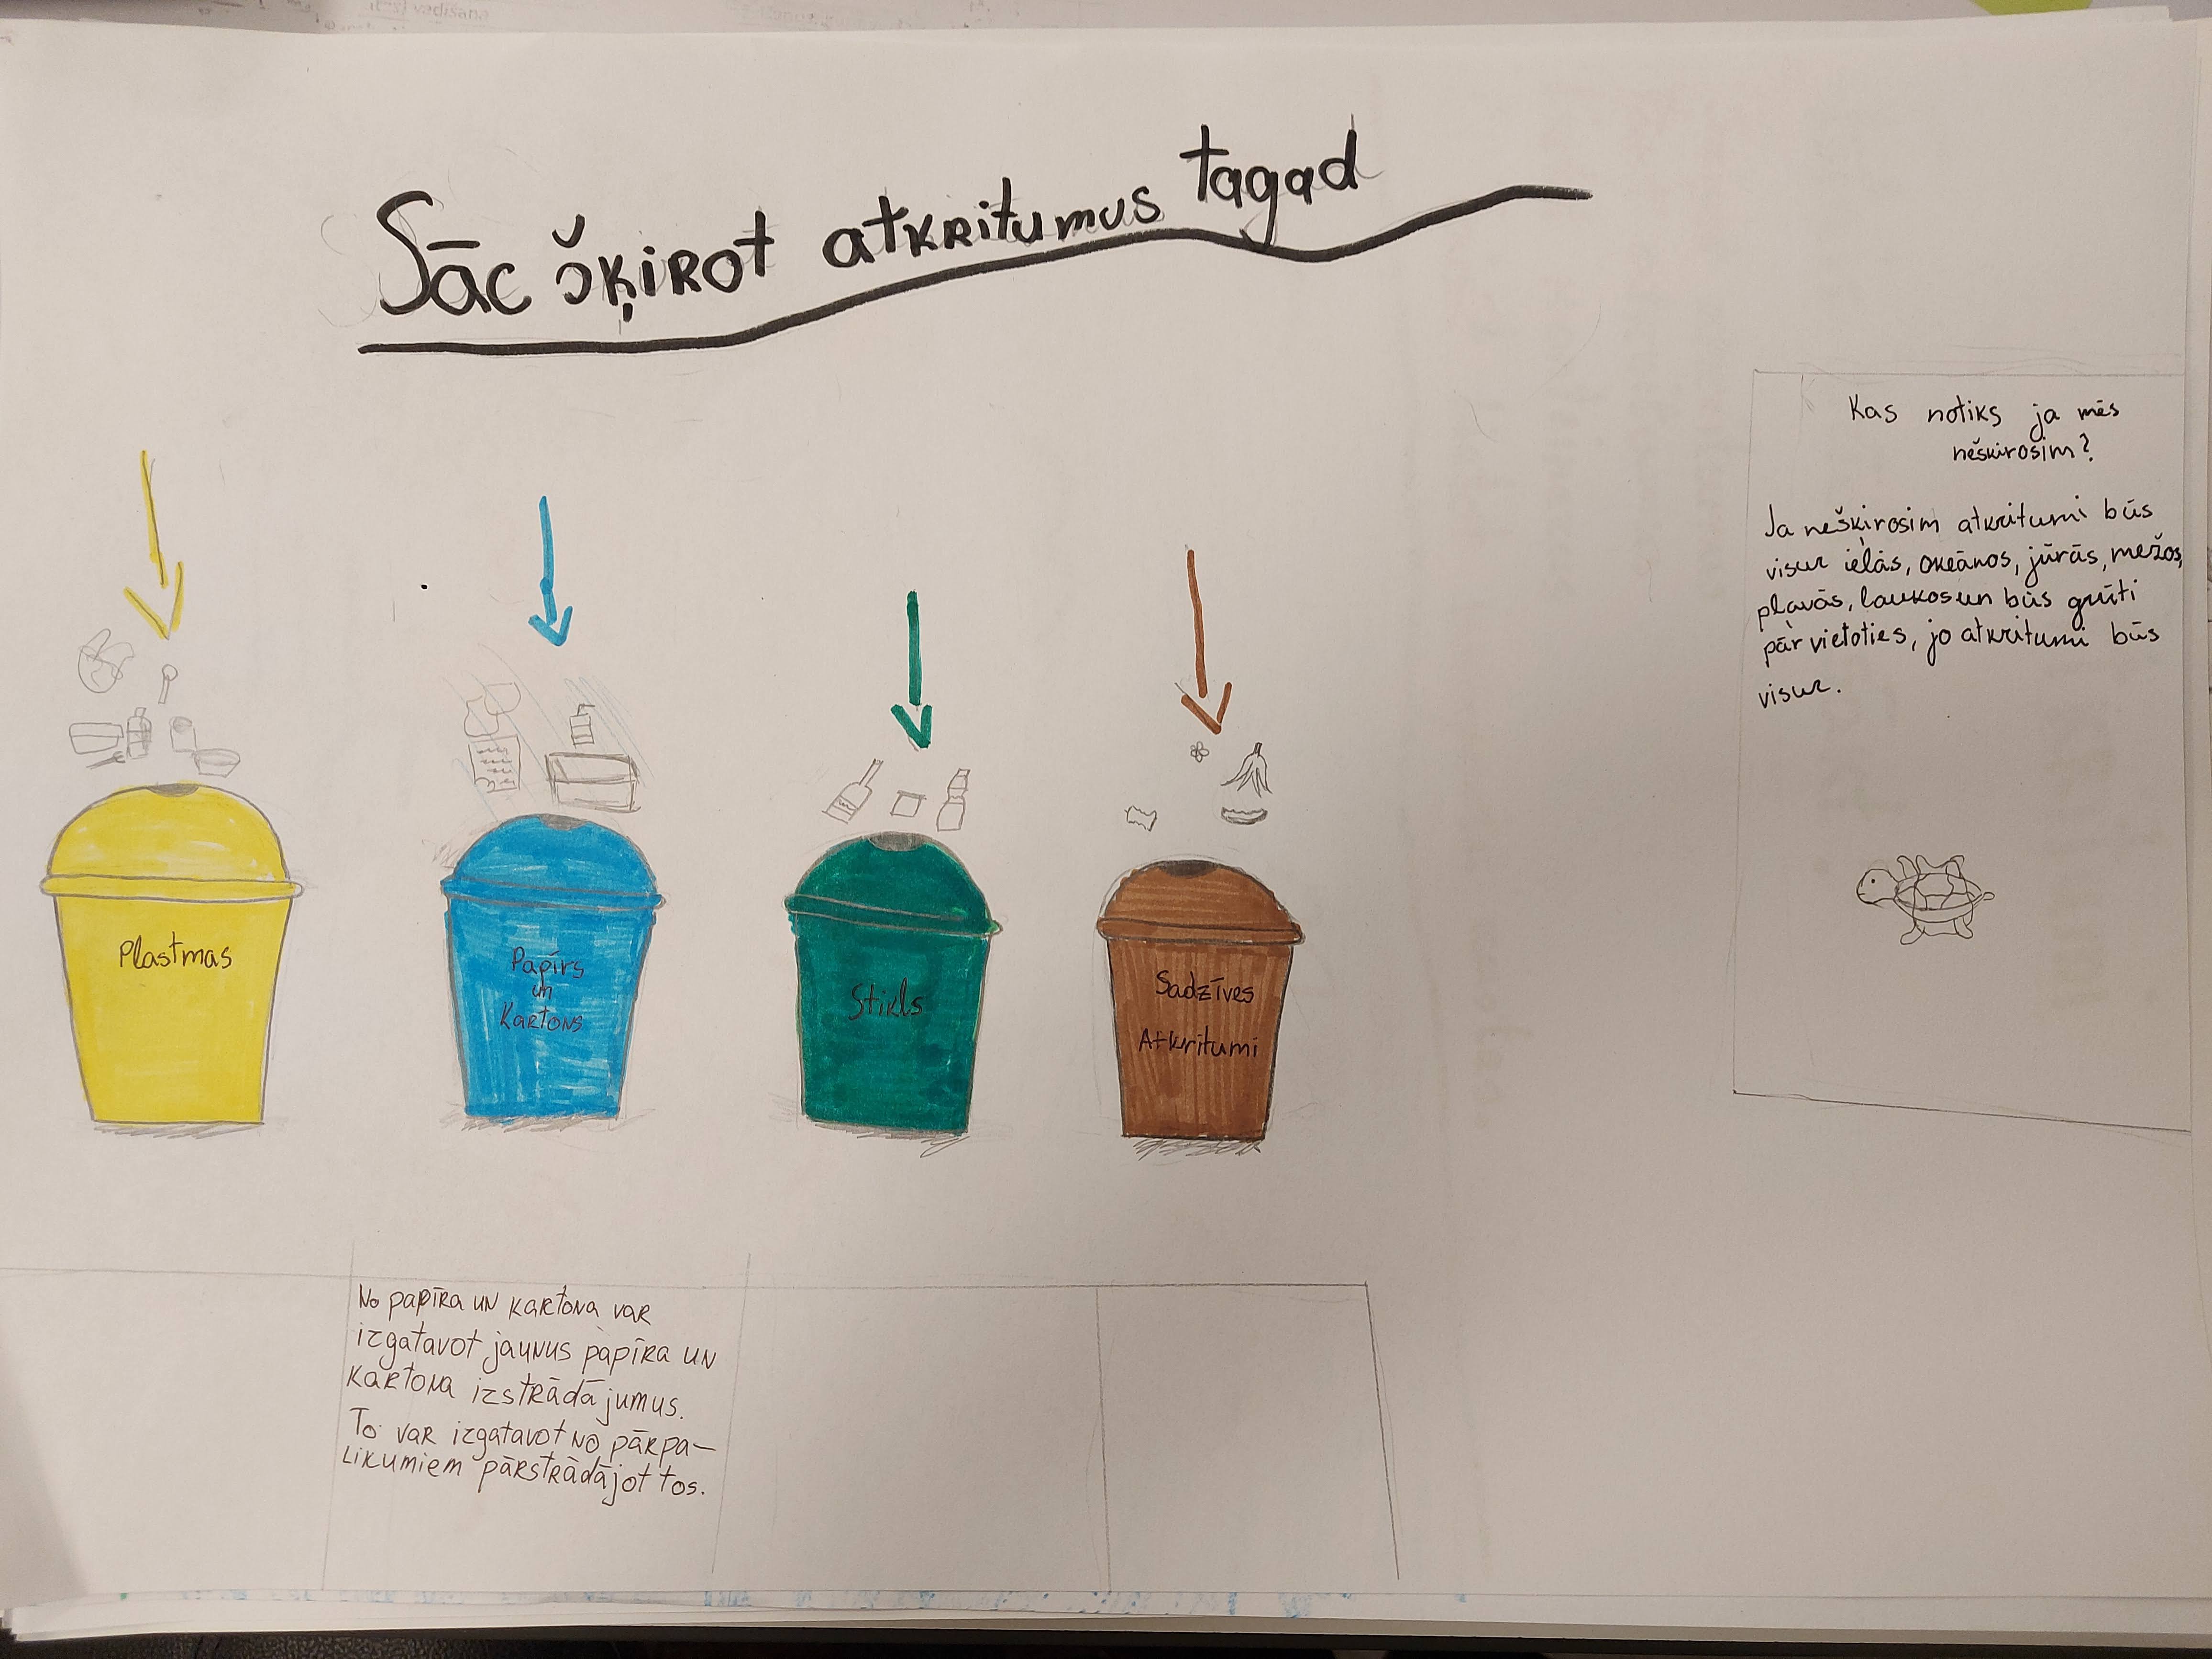 vadīšana
Sāc šķirot atkritumus tagad
Kas notiks ja mēs
neškirosim?
Ja nešķirosim atkritumi būs
visur ielās, okeānos, jūrās, mežos,
pļavās, laukos un būs grūti
pārvietoties, jo atkritumi būs
visur.
Plastmas
Papīrs
un
Kartons
Stikls
Sadzīves
Atkritumi
No papīra un kartona var
izgatavot jaunus papīra un
kartona izstrādājumus.
To var izgatavot no pārpa-
likumiem pārstrādājot tos.